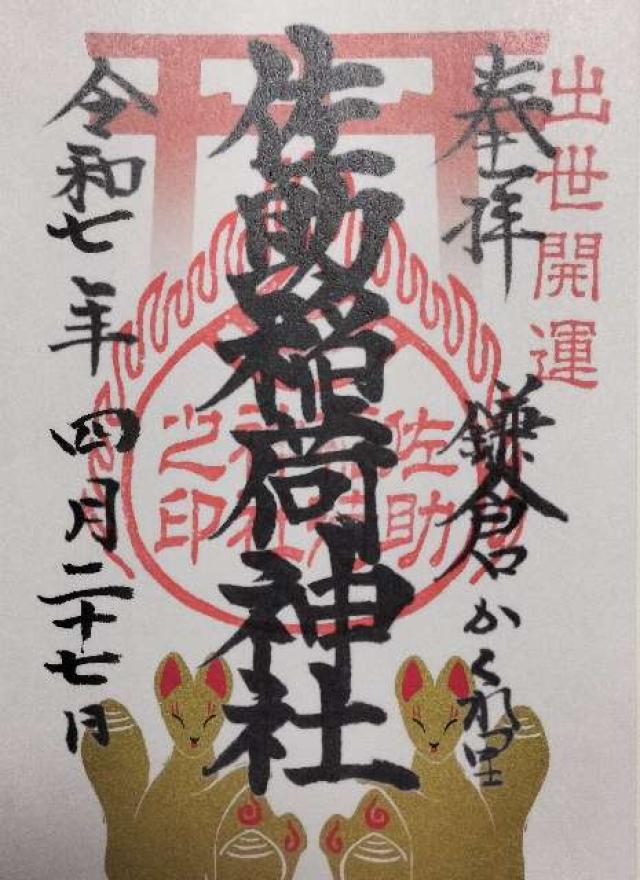 出世開運
奉拝
鎌倉かくれ里
佐助稲荷神社
佐助稲荷神社之印
令和七年四月二十七日